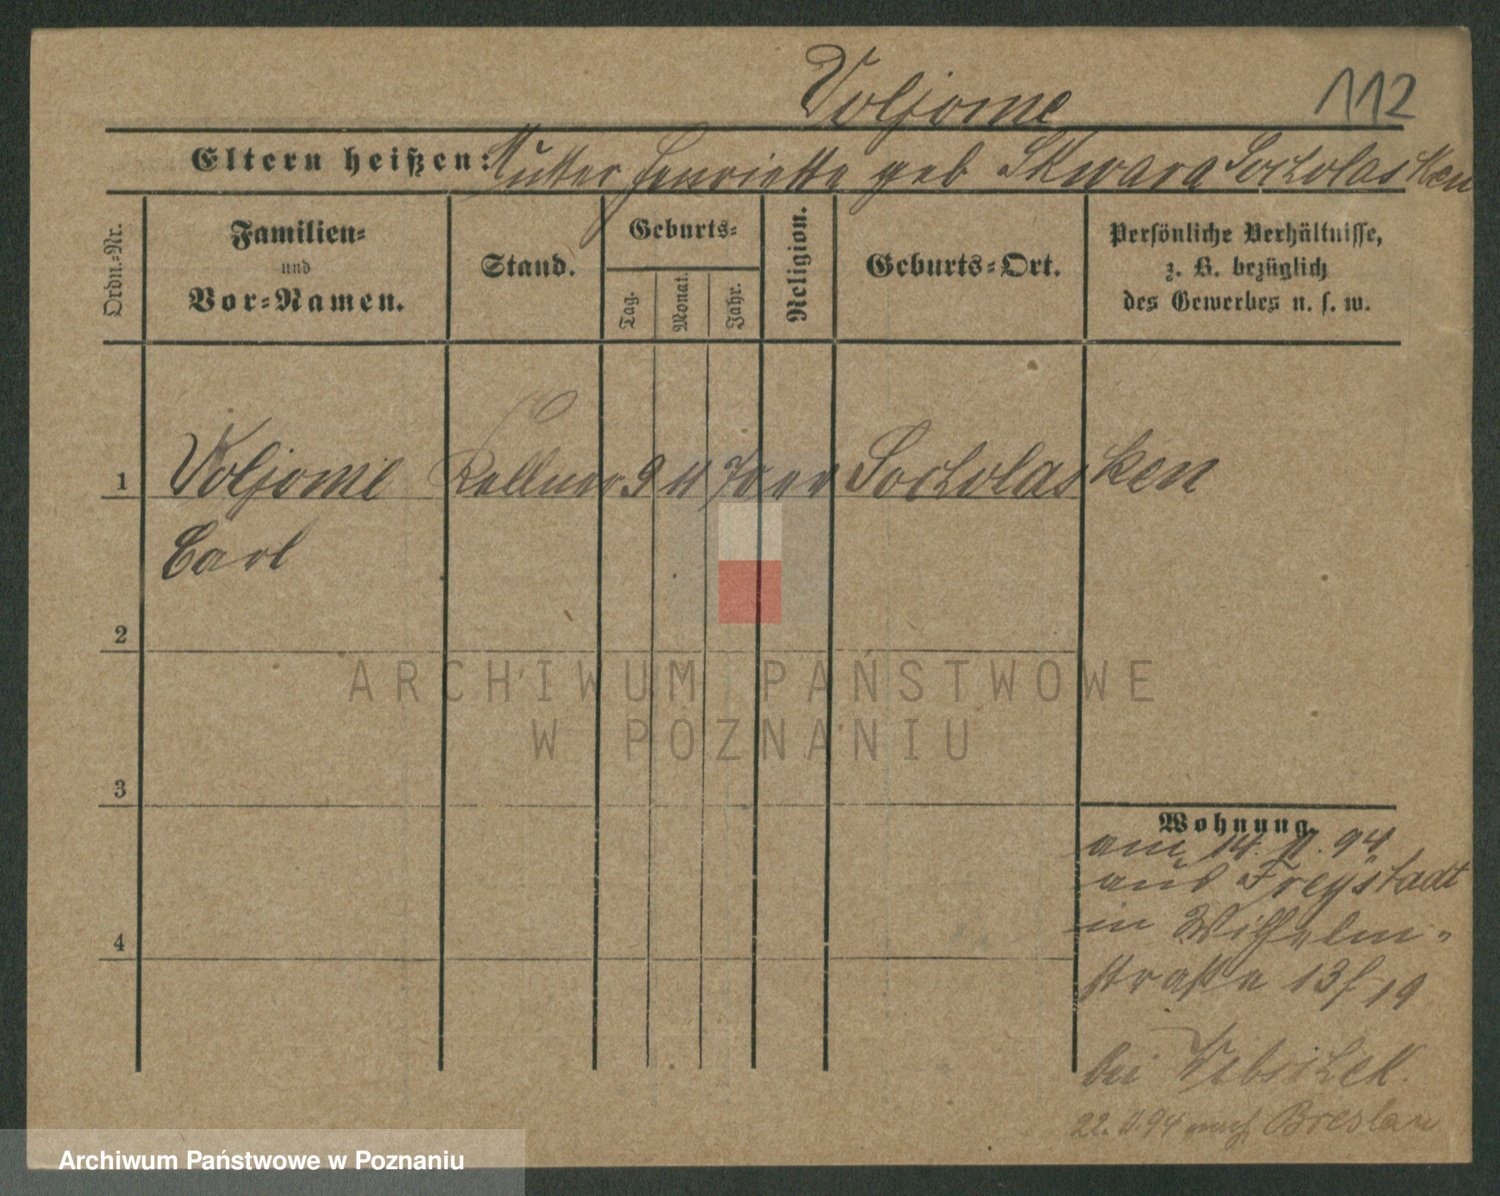 Voljome
112
Eltern heißen: Mutter Henriette geb Skwara Socholasken
Ordn.-Nr.
Familien-
und
Vor-Namen.
Stand.
Geburts-
Tag.
Monat.
Jahr.
Religion.
Geburts-Ort.
Persönliche Verhältnisse,
z. B. bezüglich
des Gewerbes u. s. w.
1 Voljome Kellner 9 11 70 ev Socholasken
Carl
2
3
4
Wohnung.
am 14. 11. 94
aus Freystadt
in Wilhelm-
straße 13/19
bei
22. 11. 94 nach Breslau
ARCHIWUM PAŃSTWOWE
W POZNANIU
Archiwum Państwowe w Poznaniu